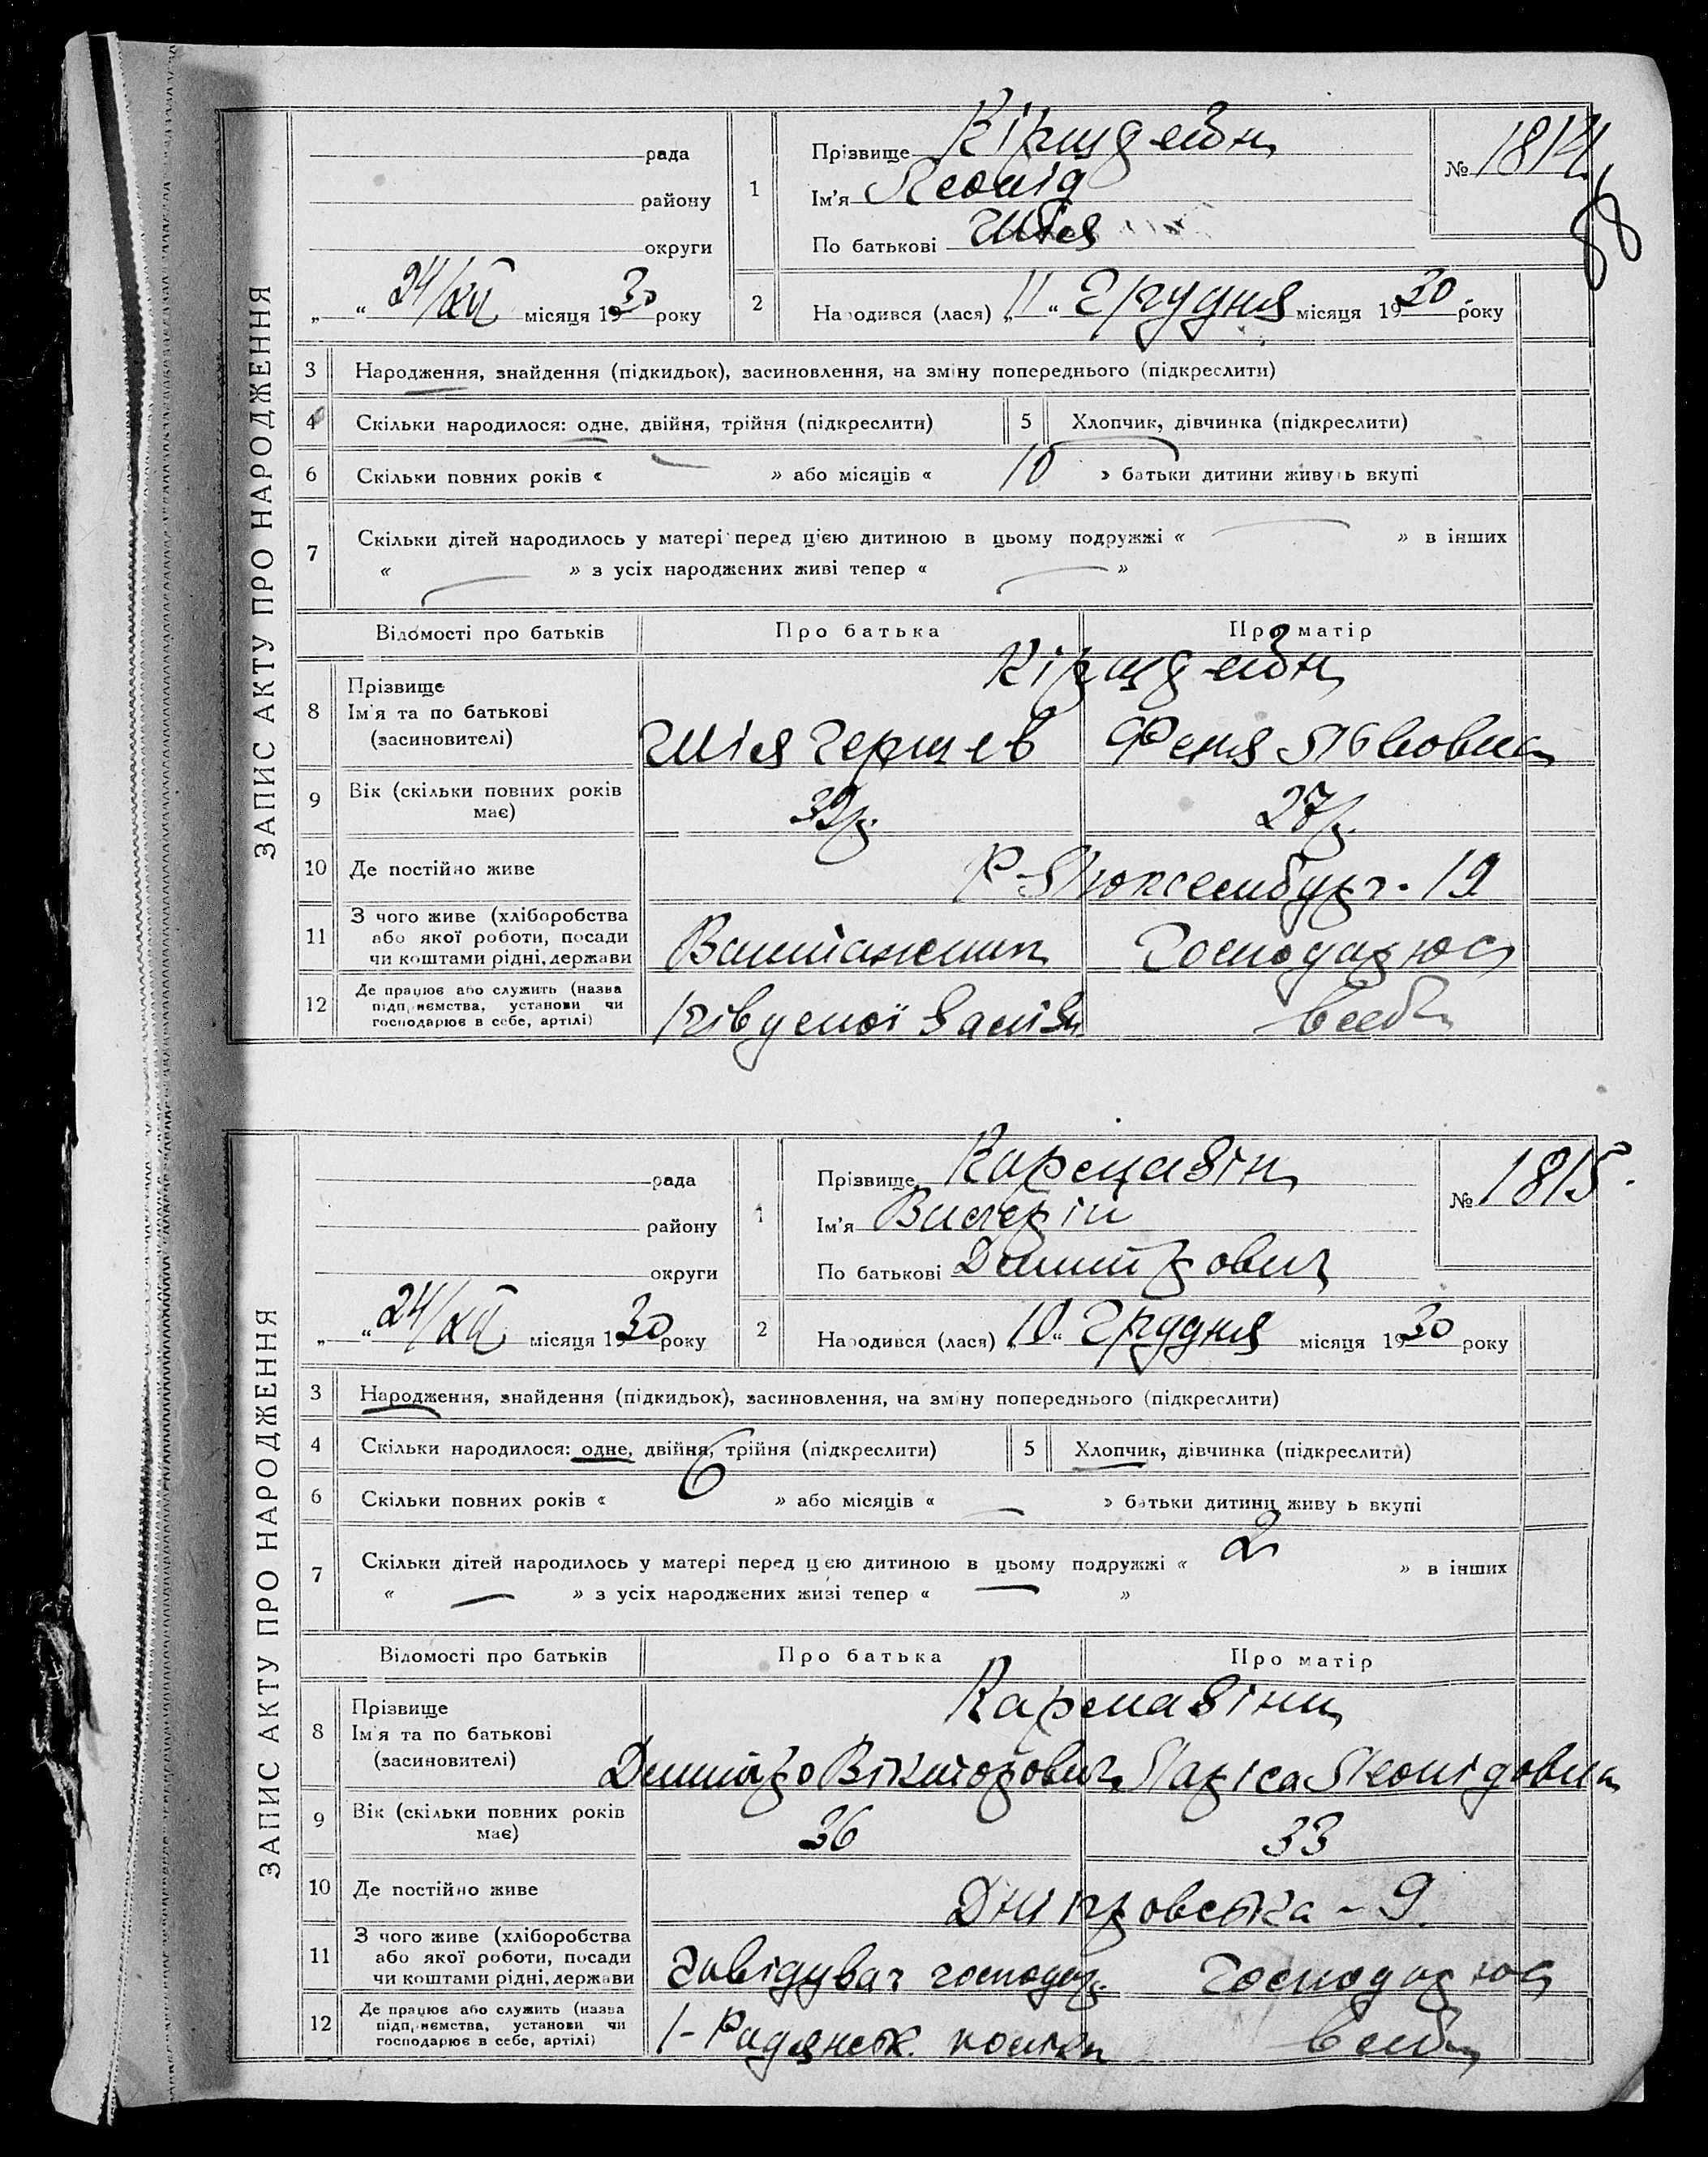 ЗАПИС АКТУ ПРО НАРОДЖЕННЯ
рада
району
округи
„ “ 24/XII місяця 1930 року
1
Прізвище Кірщдейн
Ім'я Леонід
По батькові Шія
№ 1814
2
Народився (лася) „11“ Грудня місяця 1930 року
3 Народження, знайдення (підкидьок), засиновлення, на зміну попереднього (підкреслити)
4 Скільки народилося: одне, двійня, трійня (підкреслити)
5 Хлопчик, дівчинка (підкреслити)
6 Скільки повних років « — » або місяців « 10 » батьки дитини живуть вкупі
7 Скільки дітей народилось у матері перед цією дитиною в цьому подружжі « — » в інших
« — » з усіх народжених живі тепер « — »
Відомості про батьків Про батька Про матір
8 Прізвище
Ім'я та по батькові
(засиновителі)
Кірщдейн
Шія Гершев Феня Львовна
9 Вік (скільки повних років має)
32р. 27р.
10 Де постійно живе
Р-Люксембург. 19
11 З чого живе (хліборобства
або якої роботи, посади
чи коштами рідні, держави
Вантажник Господарює
12 Де працює або служить (назва
підприємства, установи чи
господарює в себе, артілі)
в себе
ЗАПИС АКТУ ПРО НАРОДЖЕННЯ
рада
району
округи
„ “ 24/XII місяця 1930 року
1
Прізвище Кармазін
Ім'я Валерій
По батькові Дмитрович
№ 1815.
2
Народився (лася) „10“ Грудня місяця 1930 року
3 Народження, знайдення (підкидьок), засиновлення, на зміну попереднього (підкреслити)
4 Скільки народилося: одне, двійня, трійня (підкреслити)
5 Хлопчик, дівчинка (підкреслити)
6 Скільки повних років « 6 » або місяців « — » батьки дитини живуть вкупі
7 Скільки дітей народилось у матері перед цією дитиною в цьому подружжі « 2 » в інших
« — » з усіх народжених живі тепер « — »
Відомості про батьків Про батька Про матір
8 Прізвище
Ім'я та по батькові
(засиновителі)
Кармазіни
Дмитро Вікторович Лариса Леонідовна
9 Вік (скільки повних років має)
36 33
10 Де постійно живе
Дніпровська - 9.
11 З чого живе (хліборобства
або якої роботи, посади
чи коштами рідні, держави
Завідувач господар. Господарює
12 Де працює або служить (назва
підприємства, установи чи
господарює в себе, артілі)
1-Радянськ. в себе